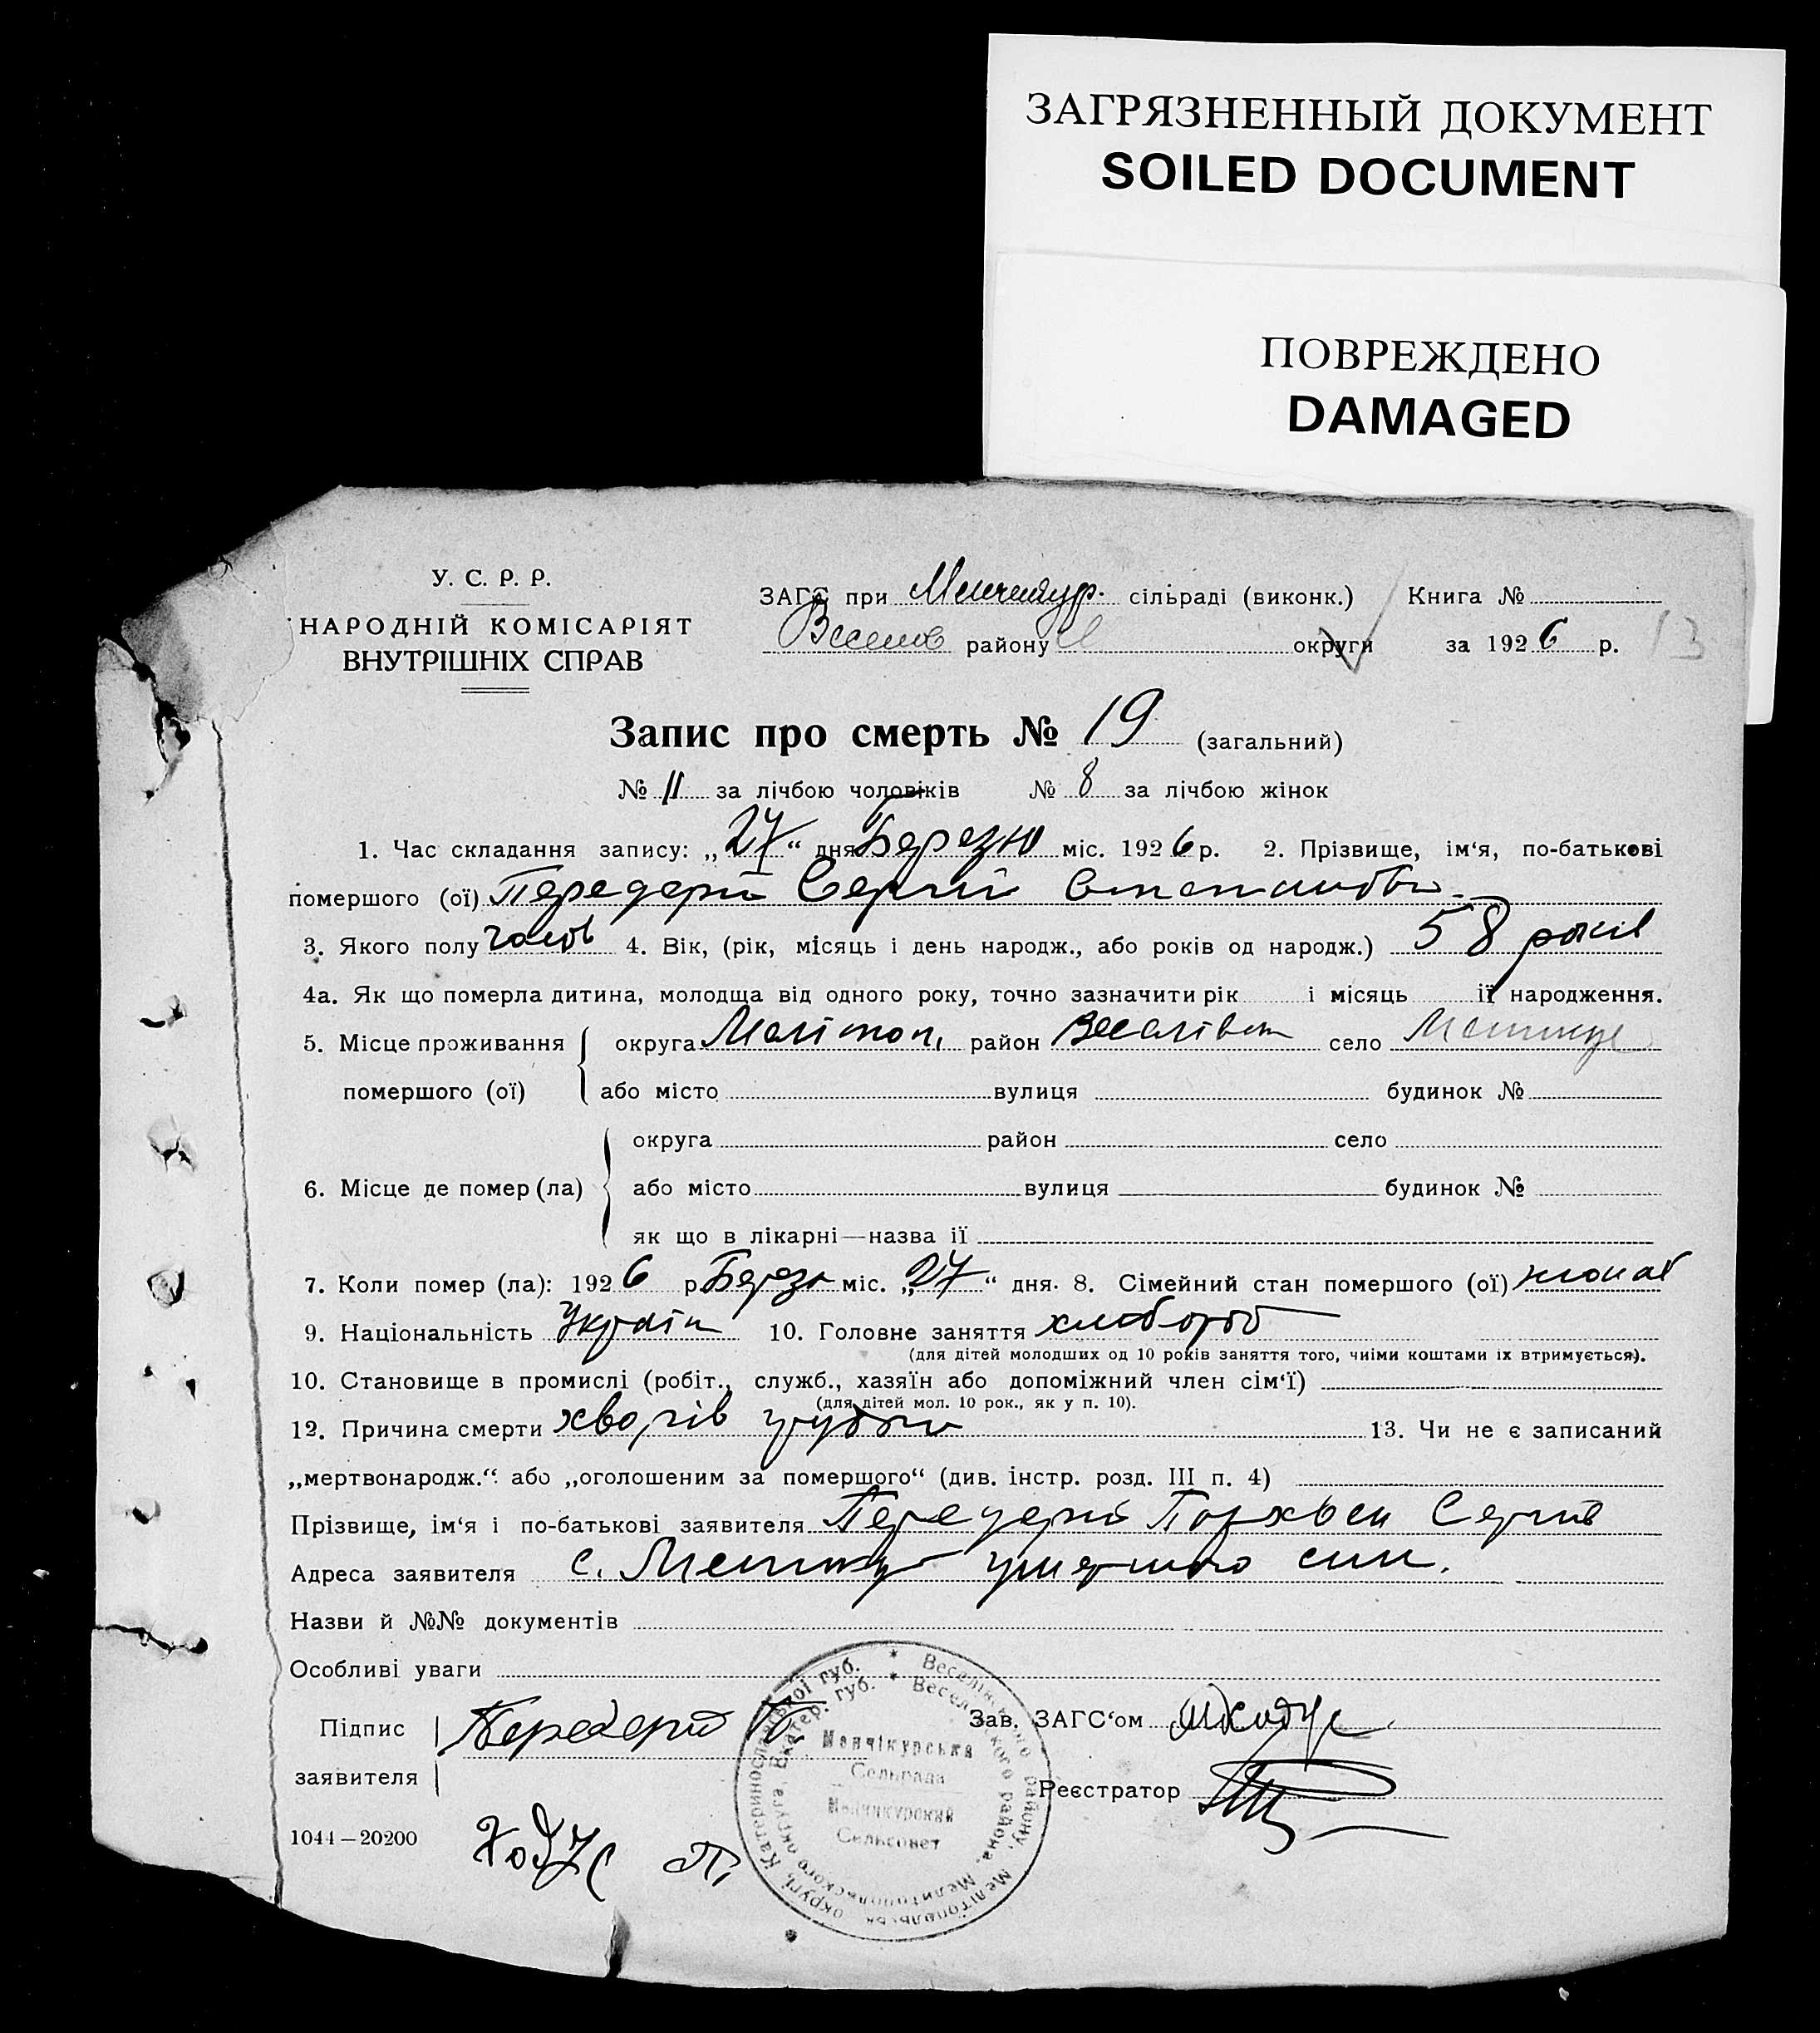 ЗАГРЯЗНЕННЫЙ ДОКУМЕНТ
SOILED DOCUMENT
ПОВРЕЖДЕНО
DAMAGED
У. С. Р. Р.
НАРОДНІЙ КОМІСАРІЯТ
ВНУТРІШНІХ СПРАВ
ЗАГС при Менчикур. сільраді (виконк.) Книга №
Веселов району округи за 1926 р. 13
Запис про смерть № 19 (загальний)
№ 11 за лічбою чоловіків № 8 за лічбою жінок
1. Час складання запису: „27“ дня Березню міс. 1926 р. 2. Прізвище, ім‘я, по-батькові
помершого (ої) Передерій Сергій Степанови
3. Якого полу чолов 4. Вік, (рік, місяць і день народж., або років од народж.) 58 років
4а. Як що померла дитина, молодща від одного року, точно зазначити рік і місяць її народження.
5. Місце проживання округа Мелітоп, район Веселівськ село
помершого (ої) або місто вулиця будинок №
округа район село
6. Місце де помер (ла) або місто вулиця будинок №
як що в лікарні—назва ії
7. Коли помер (ла): 1926 р. Березн міс. „27“ дня. 8. Сімейний стан помершого (ої) жонат
9. Національність Україн 10. Головне заняття хлебороб
(для дітей молодших од 10 років заняття того, чиїми коштами їх втримується).
10. Становище в промислі (робіт., служб., хазяїн або допоміжний член сім‘ї)
(для дітей мол. 10 рок., як у п. 10).
12. Причина смерти хворів грудьми 13. Чи не є записаний
„мертвонародж.“ або „оголошеним за помершого“ (див. інстр. розд. III п. 4)
Прізвище, ім‘я і по-батькові заявителя Передерій Пархвен Сергіїв
Адреса заявителя с. син.
Назви й №№ документів
Особливі уваги
Підпис Передерій П. Зав. ЗАГС‘ом
заявителя
Реєстратор
1044—20200
Катеринославської губ. * Веселівського району, Мелітопольськ округі,
Екатер. губ. * Веселовского района, Мелитопольского округа,
Менчікурська
Сельрада
Менчикурский
Сельсовет